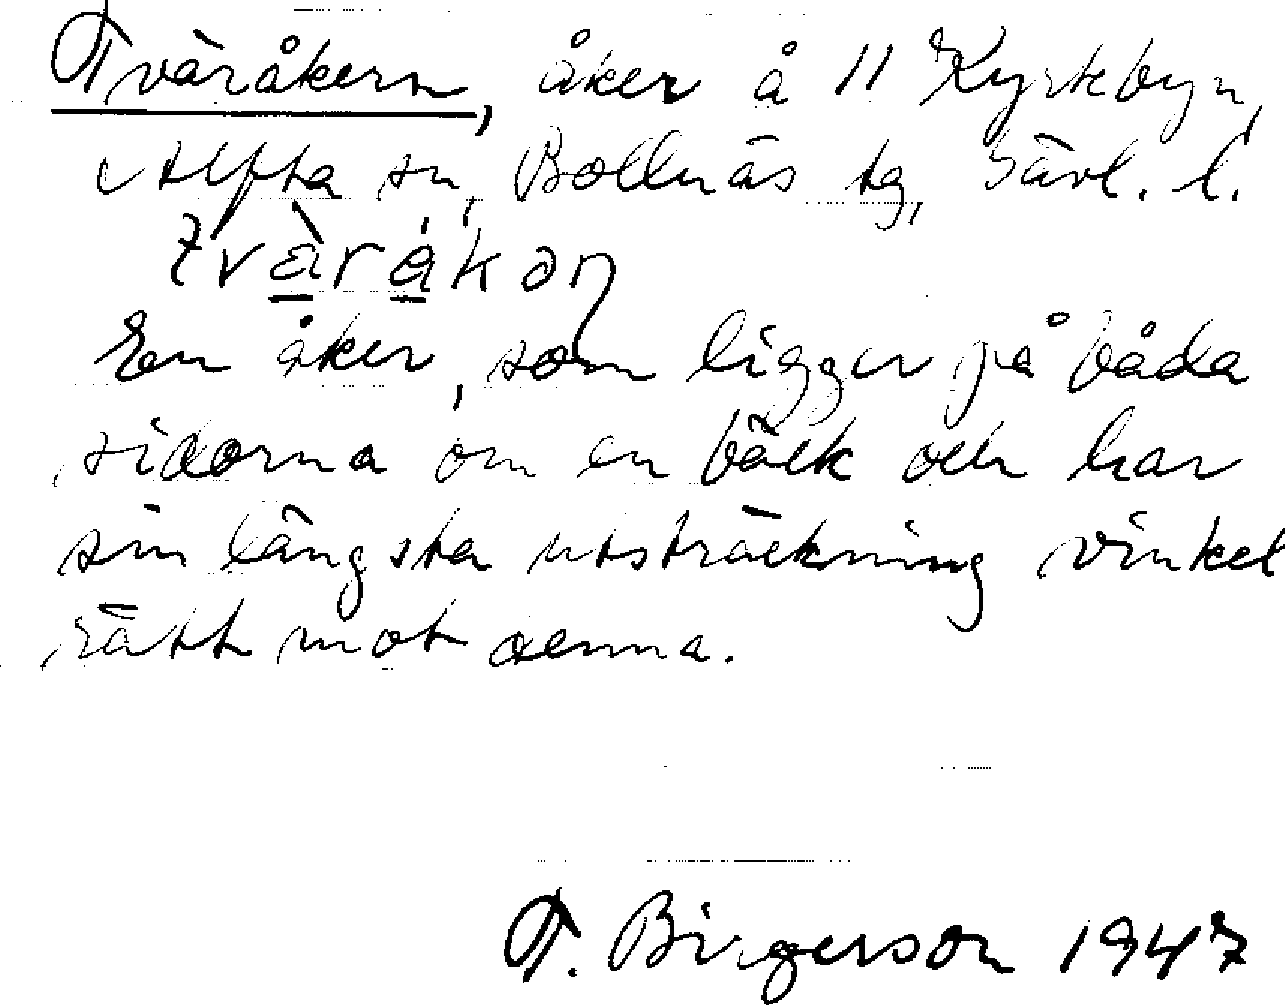 Tväråkern, åker å 11 Kyrkbyn,
Alfta sn, Bollnäs tg, Gävl. l.
tvàrákən
En åker, som ligger på båda
sidorna om en bäck och har
sin längsta utsträckning vinkel
rätt mot denna.
T. Birgerson 1947